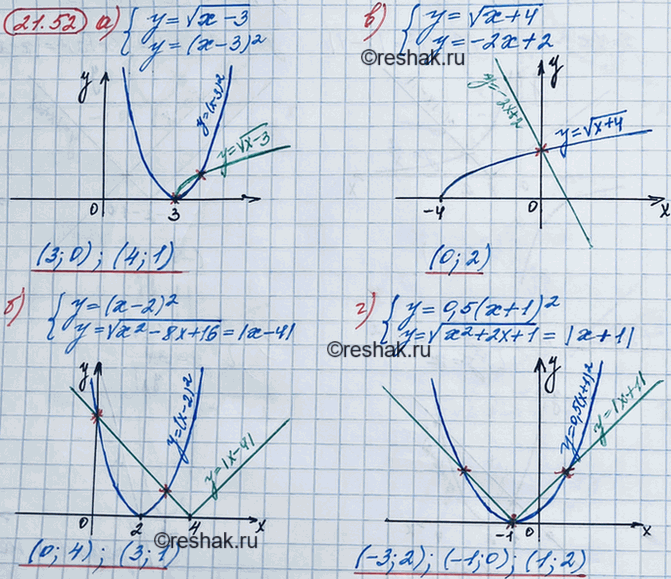 21.52 а) { y = √x-3
y = (x-3)²
y
y=(x-3)²
y=√x-3
0 3 x
(3; 0) ; (4; 1)
в) { y = √x+4
y = -2x+2
©reshak.ru
y
y=-2x+2
y=√x+4
-4 0 x
(0; 2)
б) { y = (x-2)²
y = √x²-8x+16 = |x-4|
y
y=(x-2)²
y=|x-4|
0 2 4 x
(0; 4) ; (3; 1)
©reshak.ru
г) { y = 0,5(x+1)²
y = √x²+2x+1 = |x+1|
©reshak.ru
y
y=0,5(x+1)²
y=|x+1|
-1 0 x
(-3; 2) ; (-1; 0) ; (1; 2)